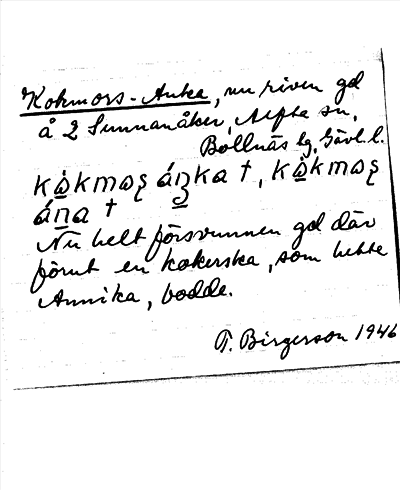 Kokmors-Anka, nu riven gd
å 2 Sunnanåker, Alfta sn,
Bollnäs tg, Gävl. l.
Nu helt försvunnen gd där
förut en kokerska, som hette
Annika, bodde.
T. Birgerson 1946